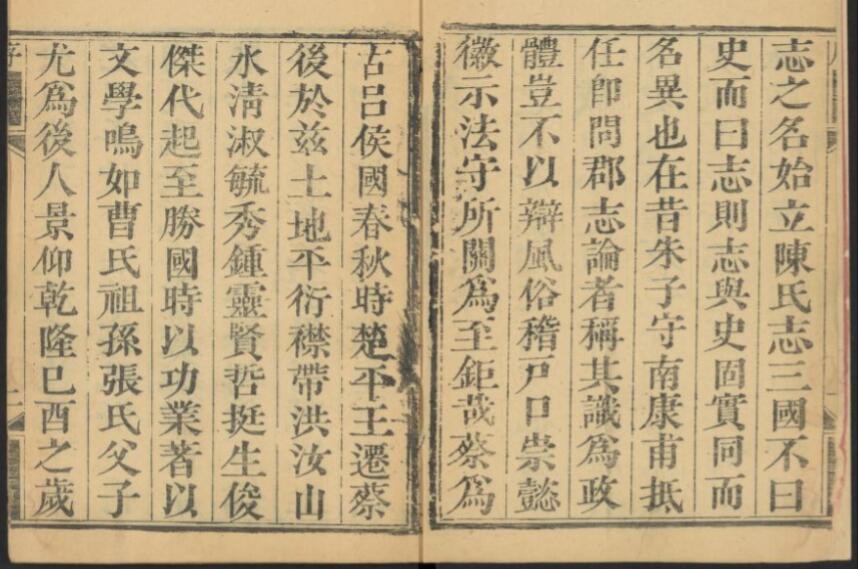 志之名始立陳氏志三國不曰
史而曰志則志與史固實同而
名異也在昔朱子守南康甫抵
任卽問郡志論者稱其識爲政
體豈不以辯風俗稽戸口崇懿
徽示法守所關爲至鉅哉蔡爲
古吕侯國春秋時楚平王遷蔡
後於兹土地平衍襟帶洪汝山
水清淑毓秀鍾靈賢哲挺生俊
傑代起至勝國時以功業著以
文學鳴如曹氏祖孫張氏父子
尤爲後人景仰乾隆己酉之歲